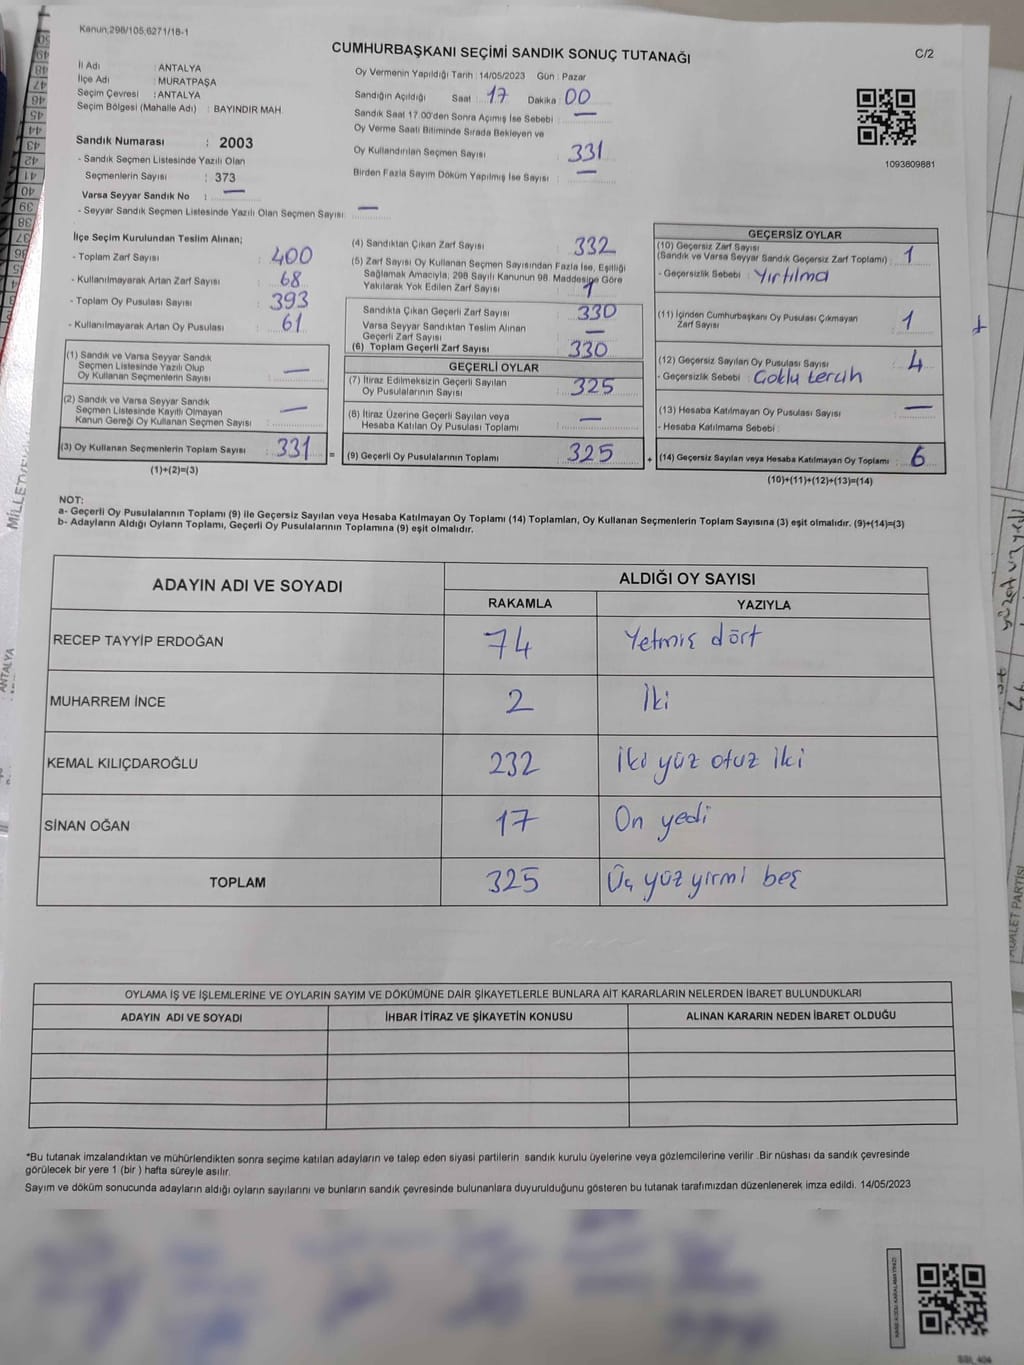 Kanun;298/105,6271/18-1
CUMHURBAŞKANI SEÇİMİ SANDIK SONUÇ TUTANAĞI
C/2
İl Adı : ANTALYA
İlçe Adı : MURATPAŞA
Seçim Çevresi : ANTALYA
Seçim Bölgesi (Mahalle Adı) : BAYINDIR MAH.
Sandık Numarası : 2003
- Sandık Seçmen Listesinde Yazılı Olan
Seçmenlerin Sayısı : 373
Varsa Seyyar Sandık No : —
- Seyyar Sandık Seçmen Listesinde Yazılı Olan Seçmen Sayısı: —
Oy Vermenin Yapıldığı Tarih : 14/05/2023 Gün : Pazar
Sandığın Açıldığı Saat : 17 Dakika 00
Sandık Saat 17.00'den Sonra Açımış İse Sebebi : —
Oy Verme Saati Bitiminde Sırada Bekleyen ve
Oy Kullandırılan Seçmen Sayısı : 331
Birden Fazla Sayım Döküm Yapılmış İse Sayısı : —
1093809881
İlçe Seçim Kurulundan Teslim Alınan;
- Toplam Zarf Sayısı : 400
- Kullanılmayarak Artan Zarf Sayısı : 68
- Toplam Oy Pusulası Sayısı : 393
- Kullanılmayarak Artan Oy Pusulası : 61
(1) Sandık ve Varsa Seyyar Sandık
Seçmen Listesinde Yazılı Olup
Oy Kullanan Seçmenlerin Sayısı : —
(2) Sandık ve Varsa Seyyar Sandık
Seçmen Listesinde Kayıtlı Olmayan
Kanun Gereği Oy Kullanan Seçmen Sayısı : —
(3) Oy Kullanan Seçmenlerin Toplam Sayısı : 331 =
(1)+(2)=(3)
(4) Sandıktan Çıkan Zarf Sayısı : 332
(5) Zarf Sayısı Oy Kullanan Seçmen Sayısından Fazla İse, Eşitliği
Sağlamak Amacıyla, 298 Sayılı Kanunun 98. Maddesine Göre
Yakılarak Yok Edilen Zarf Sayısı : 1
Sandıkta Çıkan Geçerli Zarf Sayısı : 330
Varsa Seyyar Sandıktan Teslim Alınan
Geçerli Zarf Sayısı : —
(6) Toplam Geçerli Zarf Sayısı : 330
GEÇERLİ OYLAR
(7) İtiraz Edilmeksizin Geçerli Sayılan
Oy Pusulalarının Sayısı : 325
(8) İtiraz Üzerine Geçerli Sayılan veya
Hesaba Katılan Oy Pusulası Toplamı : —
(9) Geçerli Oy Pusulalarının Toplamı : 325 +
GEÇERSİZ OYLAR
(10) Geçersiz Zarf Sayısı
(Sandık ve Varsa Seyyar Sandık Geçersiz Zarf Toplamı) : 1
- Geçersizlik Sebebi : Yırtılma
(11) İçinden Cumhurbaşkanı Oy Pusulası Çıkmayan
Zarf Sayısı : 1
(12) Geçersiz Sayılan Oy Pusulası Sayısı : 4
- Geçersizlik Sebebi : Çoklu tercih
(13) Hesaba Katılmayan Oy Pusulası Sayısı : —
- Hesaba Katılmama Sebebi :
(14) Geçersiz Sayılan veya Hesaba Katılmayan Oy Toplamı : 6
(10)+(11)+(12)+(13)=(14)
NOT:
a- Geçerli Oy Pusulalarının Toplamı (9) ile Geçersiz Sayılan veya Hesaba Katılmayan Oy Toplamı (14) Toplamları, Oy Kullanan Seçmenlerin Toplam Sayısına (3) eşit olmalıdır. (9)+(14)=(3)
b- Adayların Aldığı Oyların Toplamı, Geçerli Oy Pusulalarının Toplamına (9) eşit olmalıdır.
ADAYIN ADI VE SOYADI
ALDIĞI OY SAYISI
RAKAMLA YAZIYLA
RECEP TAYYİP ERDOĞAN 74 Yetmiş dört
MUHARREM İNCE 2 İki
KEMAL KILIÇDAROĞLU 232 İki yüz otuz iki
SİNAN OĞAN 17 On yedi
TOPLAM 325 Üç yüz yirmi beş
OYLAMA İŞ VE İŞLEMLERİNE VE OYLARIN SAYIM VE DÖKÜMÜNE DAİR ŞİKAYETLERLE BUNLARA AİT KARARLARIN NELERDEN İBARET BULUNDUKLARI
ADAYIN ADI VE SOYADI İHBAR İTİRAZ VE ŞİKAYETİN KONUSU ALINAN KARARIN NEDEN İBARET OLDUĞU
*Bu tutanak imzalandıktan ve mühürlendikten sonra seçime katılan adayların ve talep eden siyasi partilerin sandık kurulu üyelerine veya gözlemcilerine verilir .Bir nüshası da sandık çevresinde
görülecek bir yere 1 (bir ) hafta süreyle asılır.
Sayım ve döküm sonucunda adayların aldığı oyların sayılarını ve bunların sandık çevresinde bulunanlara duyurulduğunu gösteren bu tutanak tarafımızdan düzenlenerek imza edildi. 14/05/2023
ANTALYA